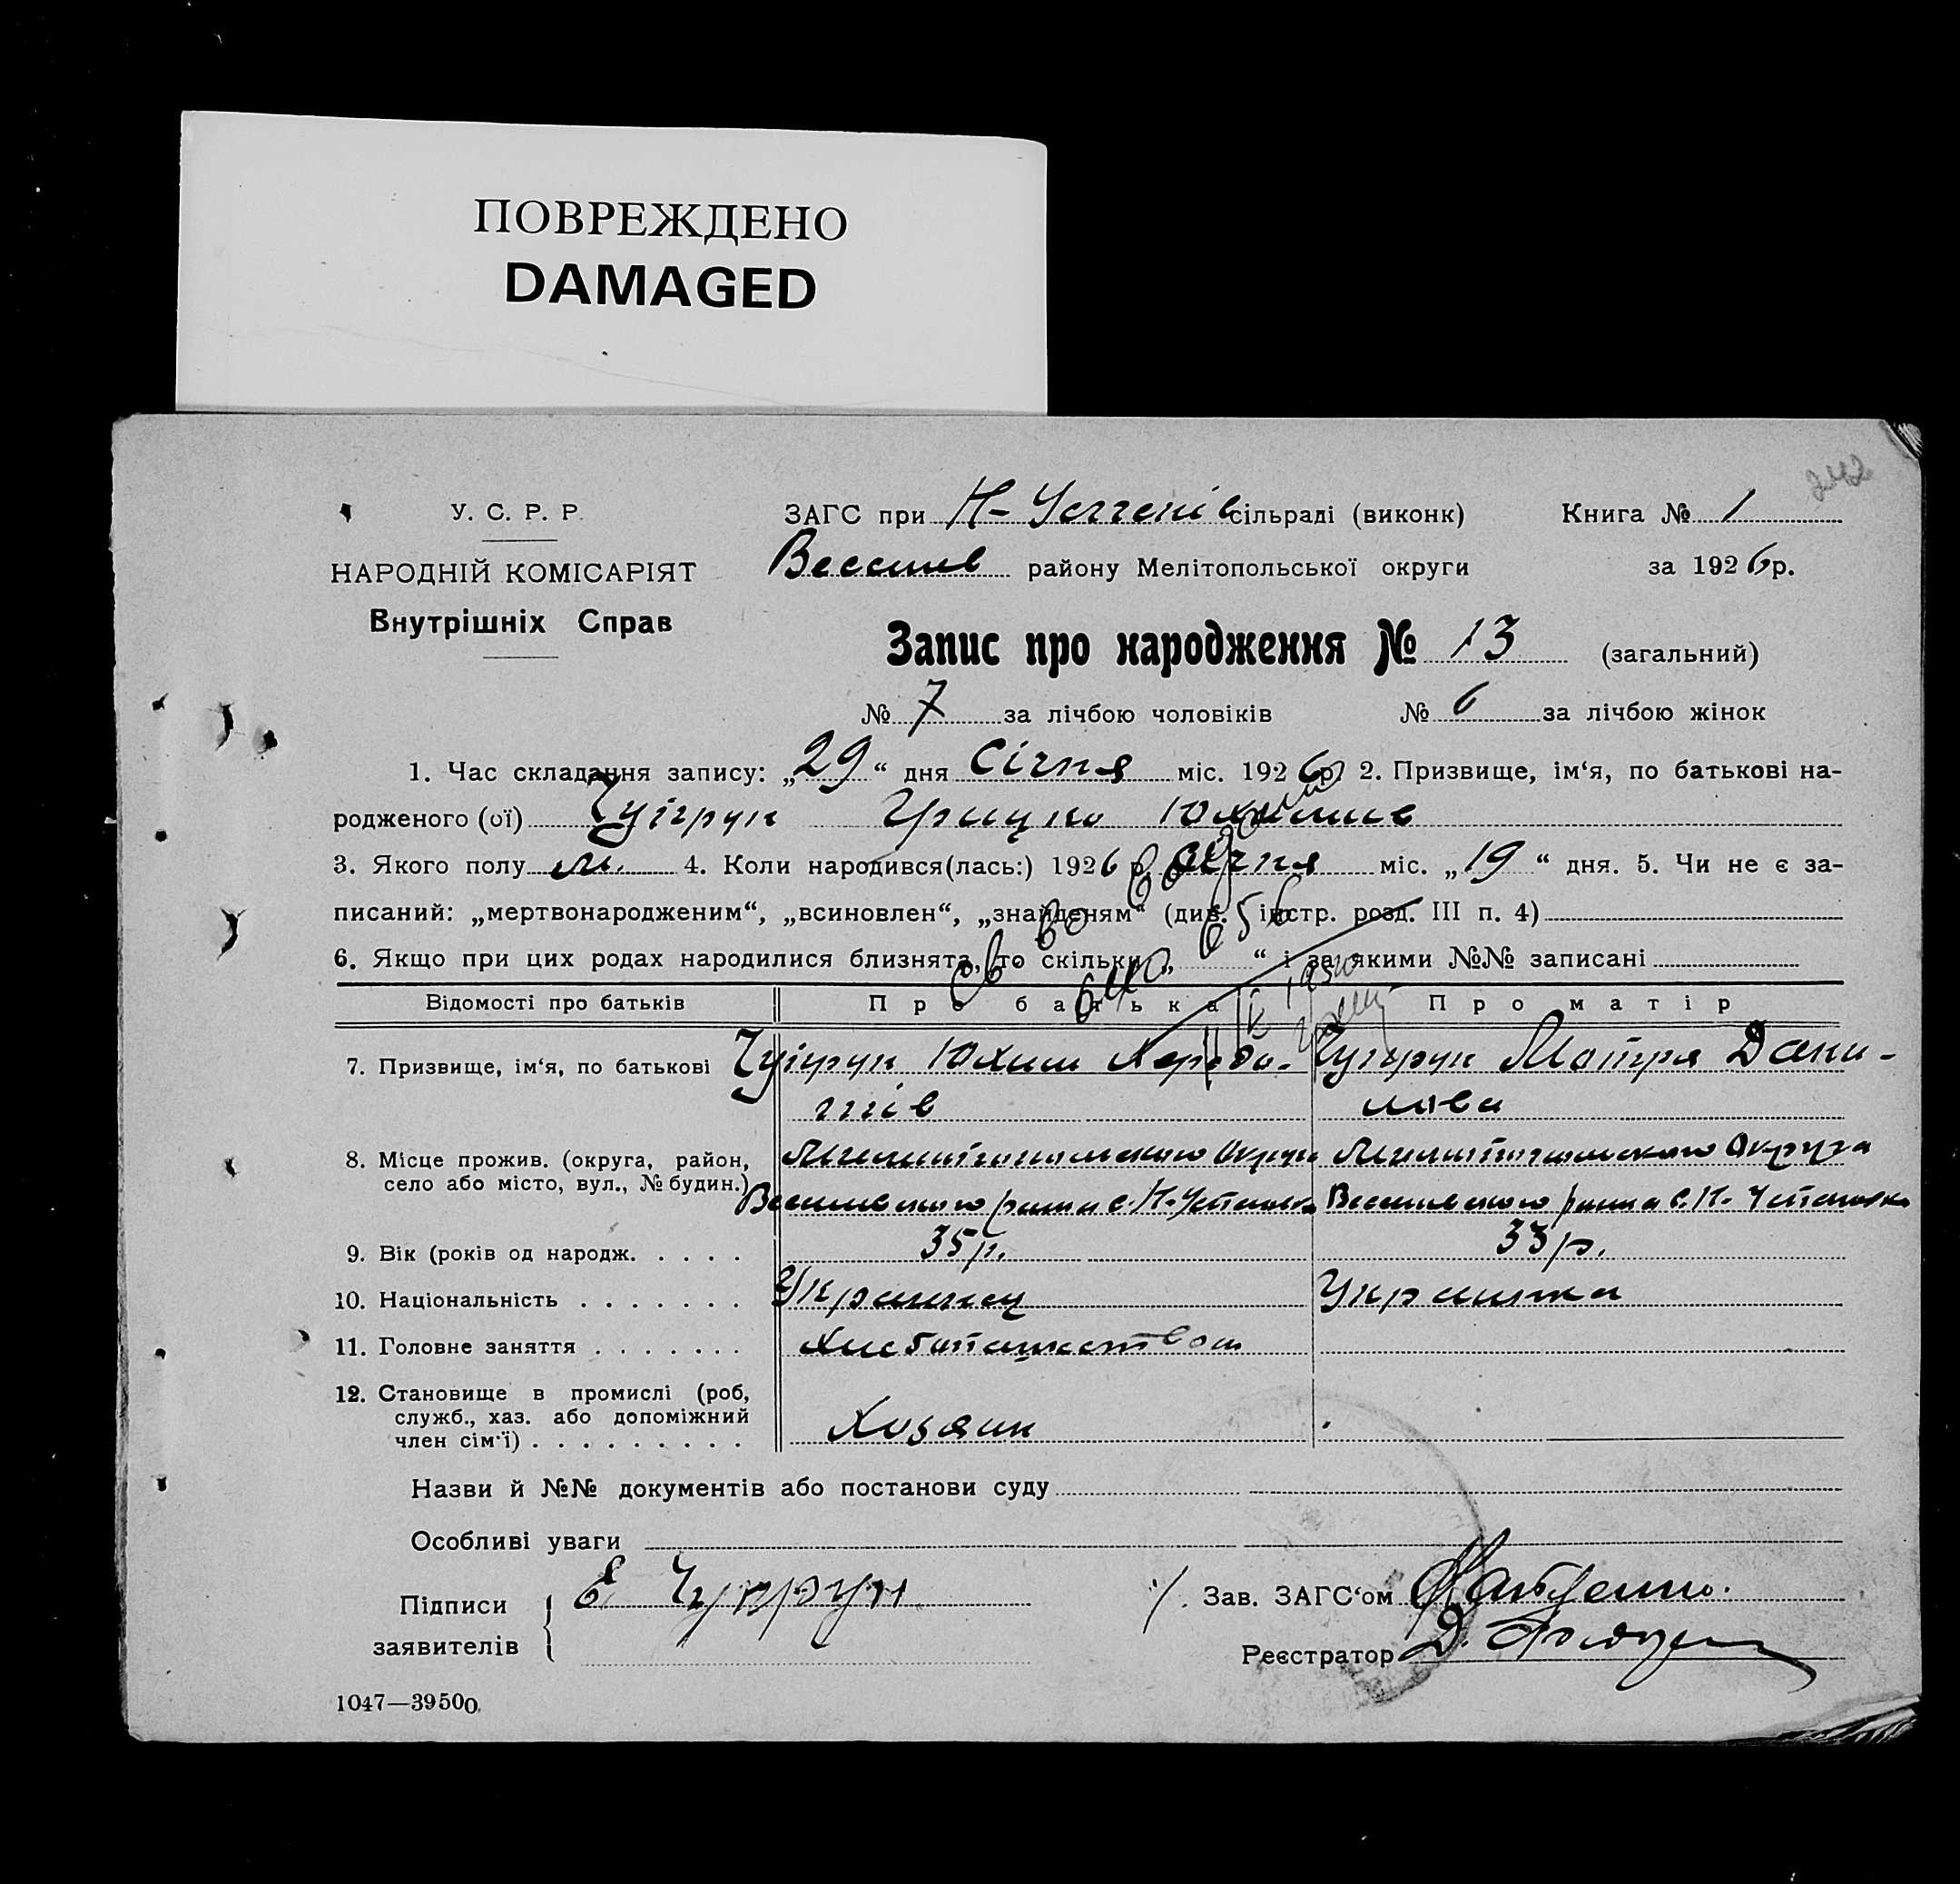 ПОВРЕЖДЕНО
DAMAGED
242
У. С. Р. Р.
НАРОДНІЙ КОМІСАРІЯТ
Внутрішніх Справ
ЗАГС при Н- сільраді (виконк) Книга № 1
Весилів району Мелітопольської округи за 1926 р.
Запис про народження № 13 (загальний)
№ 7 за лічбою чоловіків № 6 за лічбою жінок
1. Час складання запису: „29“ дня Січня міс. 1926 р. 2. Призвище, ім‘я, по батькові на-
родженого (ої) Чугірук Грицко Юхимів
3. Якого полу м. 4. Коли народився(лась:) 1926 р. Січня міс. „19“ дня. 5. Чи не є за-
писаний: „мертвонародженим“, „всиновлен“, „знайденям“ (див. інстр. розд. III п. 4)
6. Якщо при цих родах народилися близнята, то скільки „ “ і за якими №№ записані
Відомості про батьків Про батька Про матір
7. Призвище, ім‘я, по батькові Чугірук Юхим Чугірук Мотря Дани-
лова
8. Місце прожив. (округа, район, Мелитопольского Округа Мелитопольского Округа
село або місто, вул., № будин.) Веселивского раина с. Н-Успенівка Веселивского раина с. Н-Успенівка
9. Вік (років од народж. . . . . 35 р. 33 р.
10. Національність . . . . . . . Украинец Украинка
11. Головне заняття . . . . . . . Хлебопашеством
12. Становище в промислі (роб,
служб., хаз. або допоміжний
член сім‘ї) . . . . . . . . . Хозяин
Назви й №№ документів або постанови суду
Особливі уваги
Підписи Е Зав. ЗАГС‘ом
заявителів
Реєстратор Д.
1047—39500